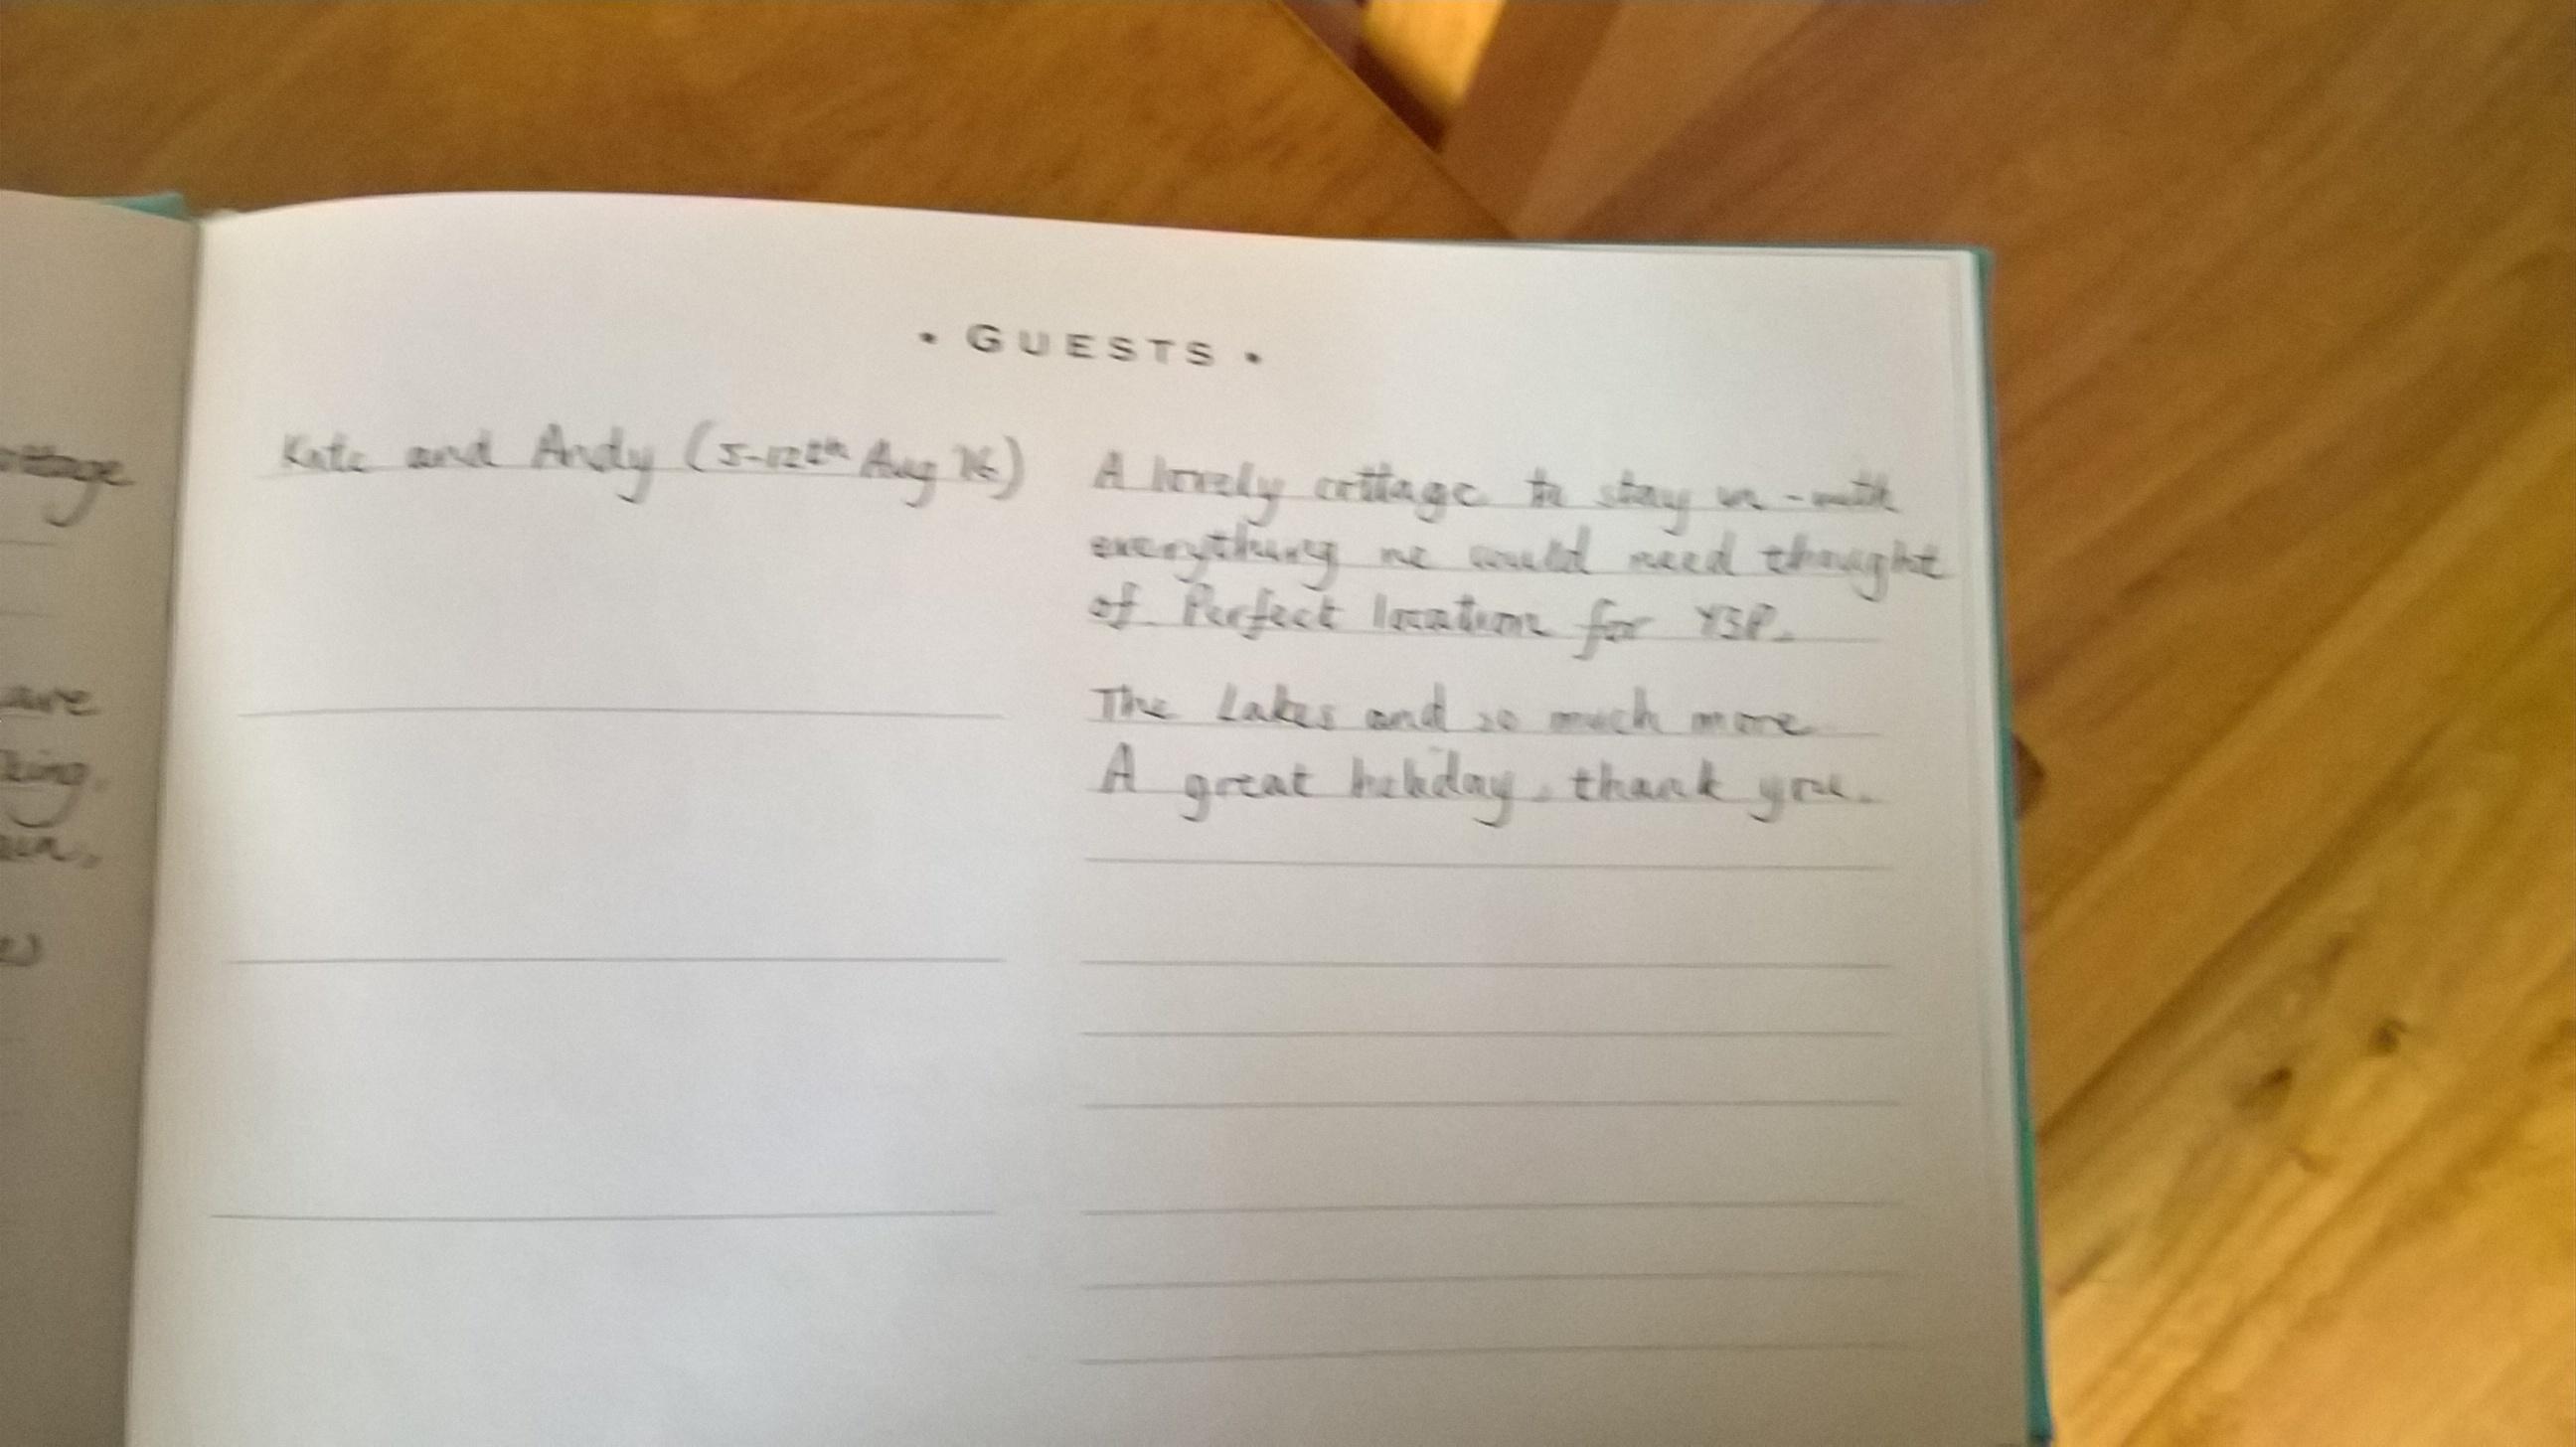 • GUESTS •
Kate and Andy (5-12th Aug 16)
A lovely cottage to stay in - with
everything we could need thought
of. Perfect location for YSP.
The Lakes and so much more
A great holiday, thank you.
ottage
are